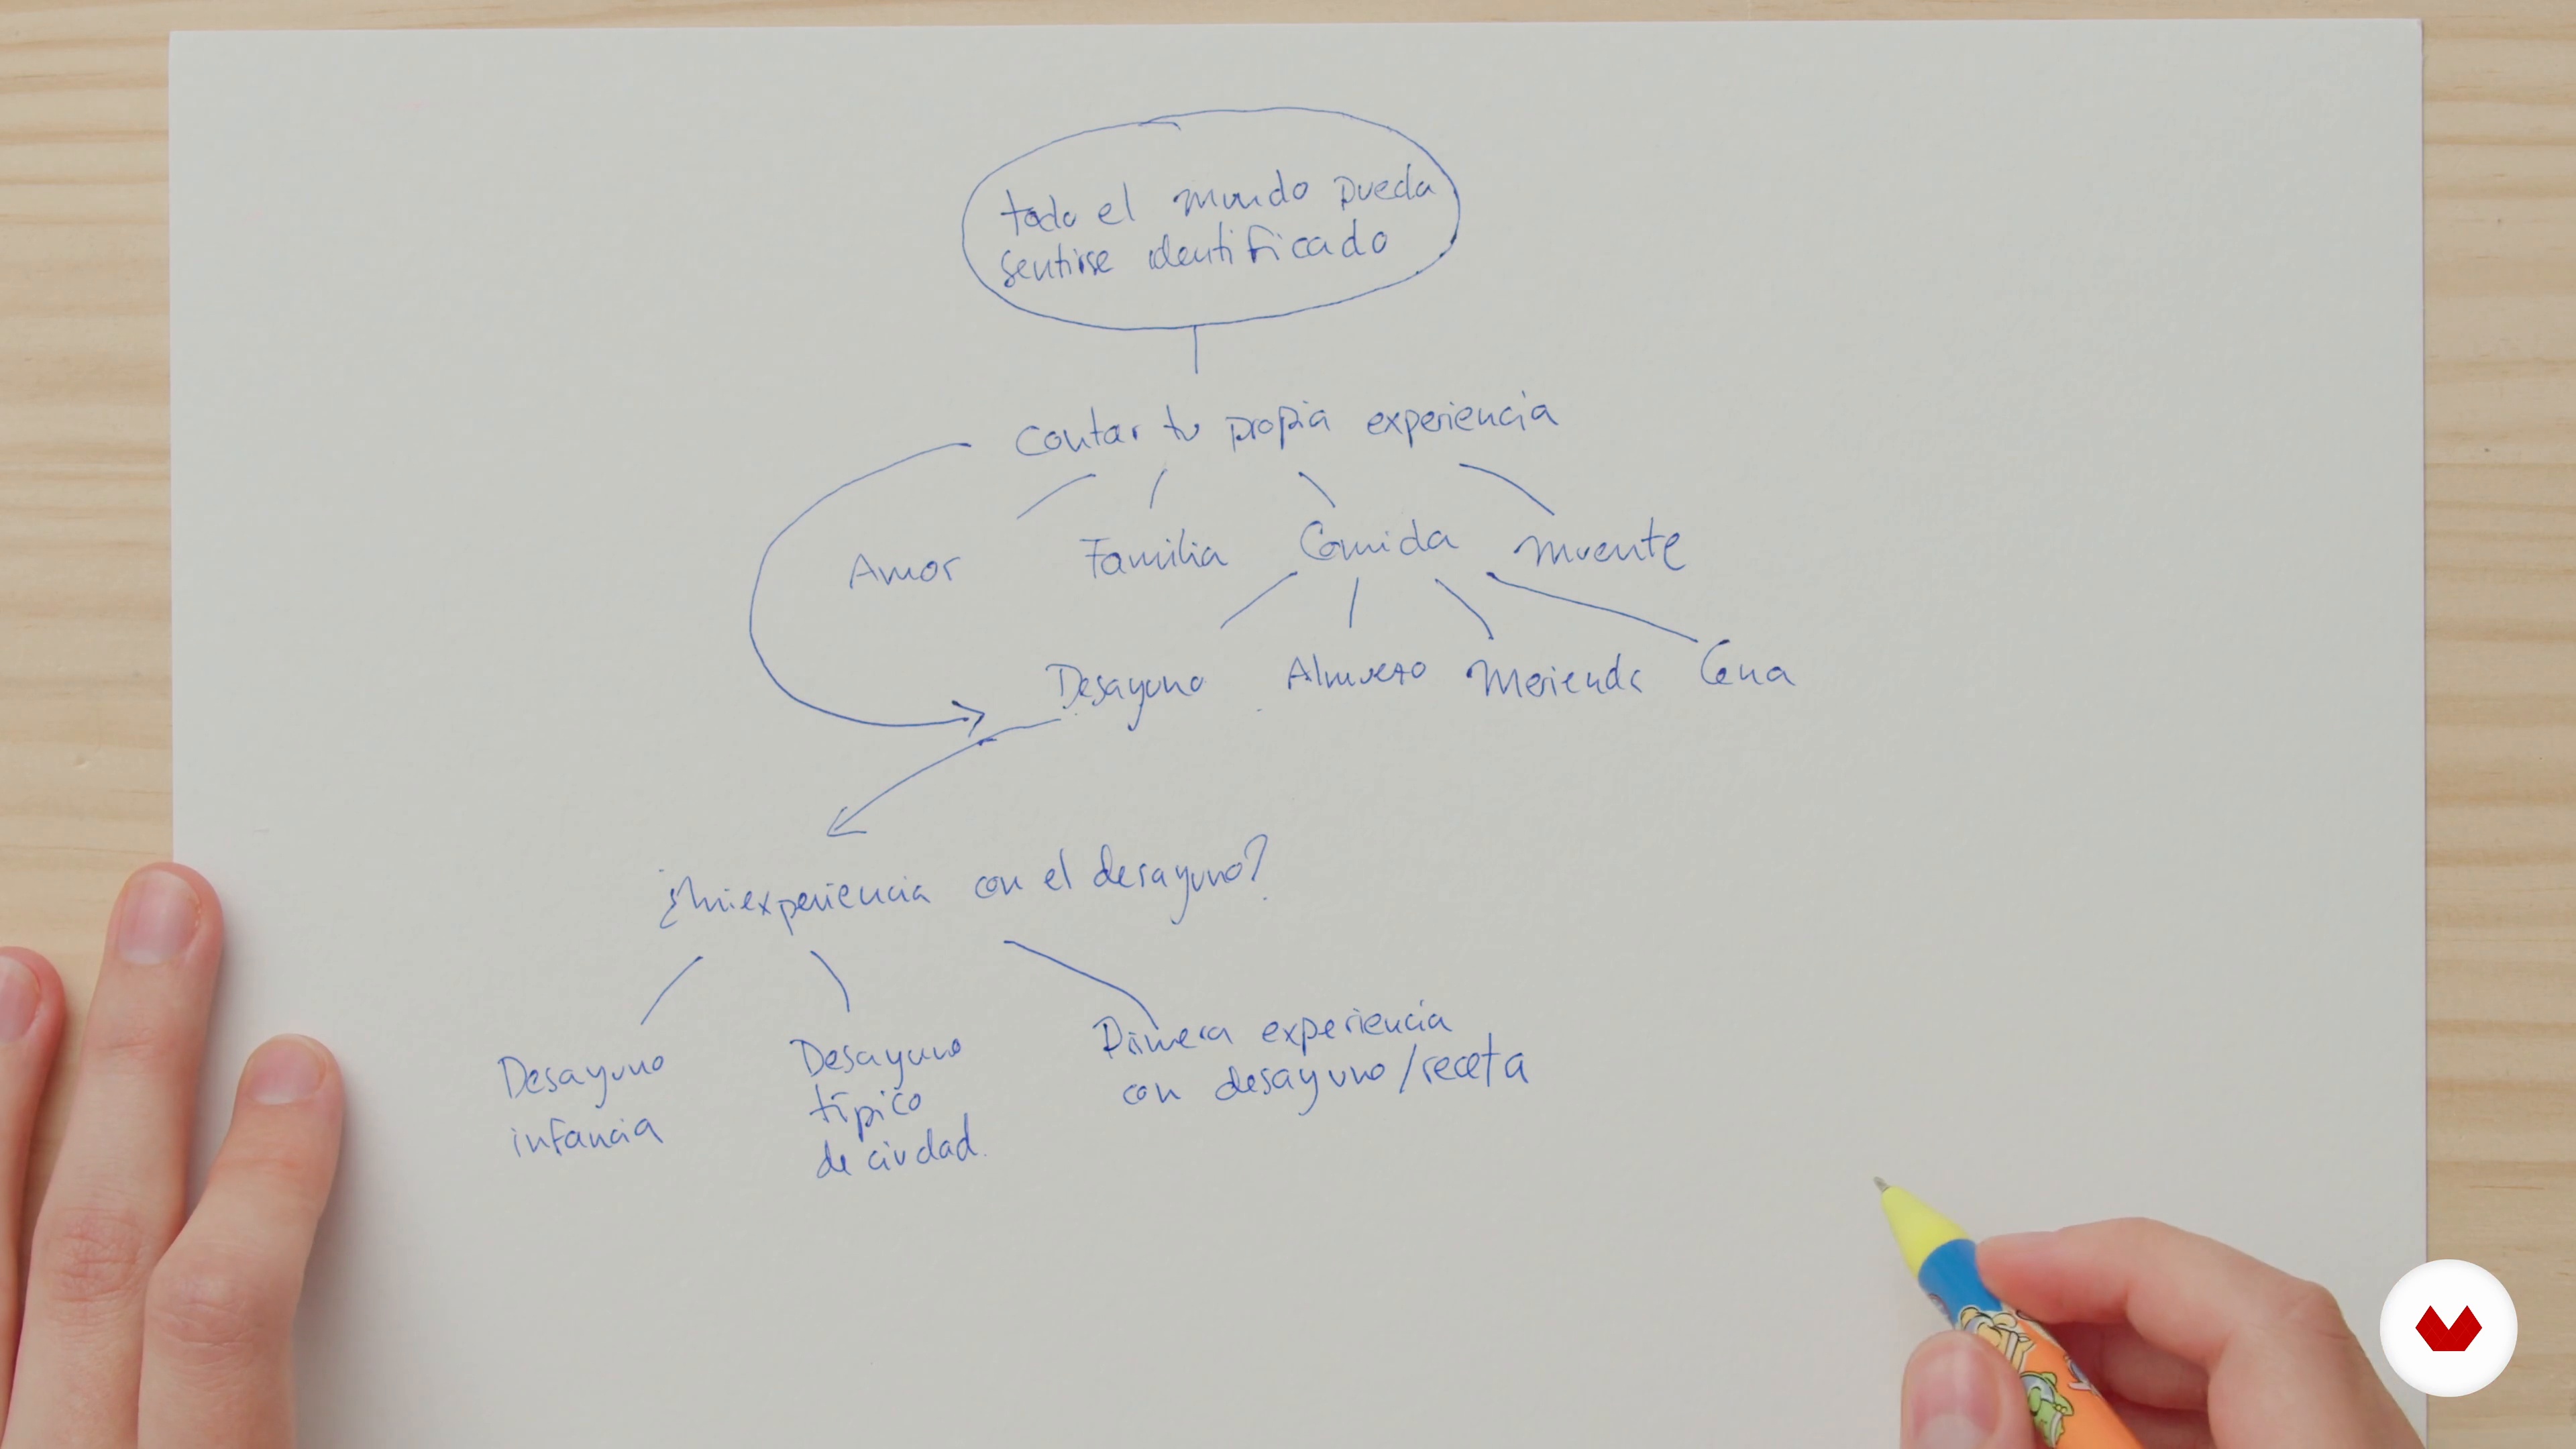 todo el mundo pueda
sentirse identificado
Contar tu propia experiencia
Amor Familia Comida muerte
Desayuno Almuerzo Merienda Cena
¿mi experiencia con el desayuno?
Desayuno
infancia
Desayuno
típico
de ciudad.
Primera experiencia
con desayuno/receta